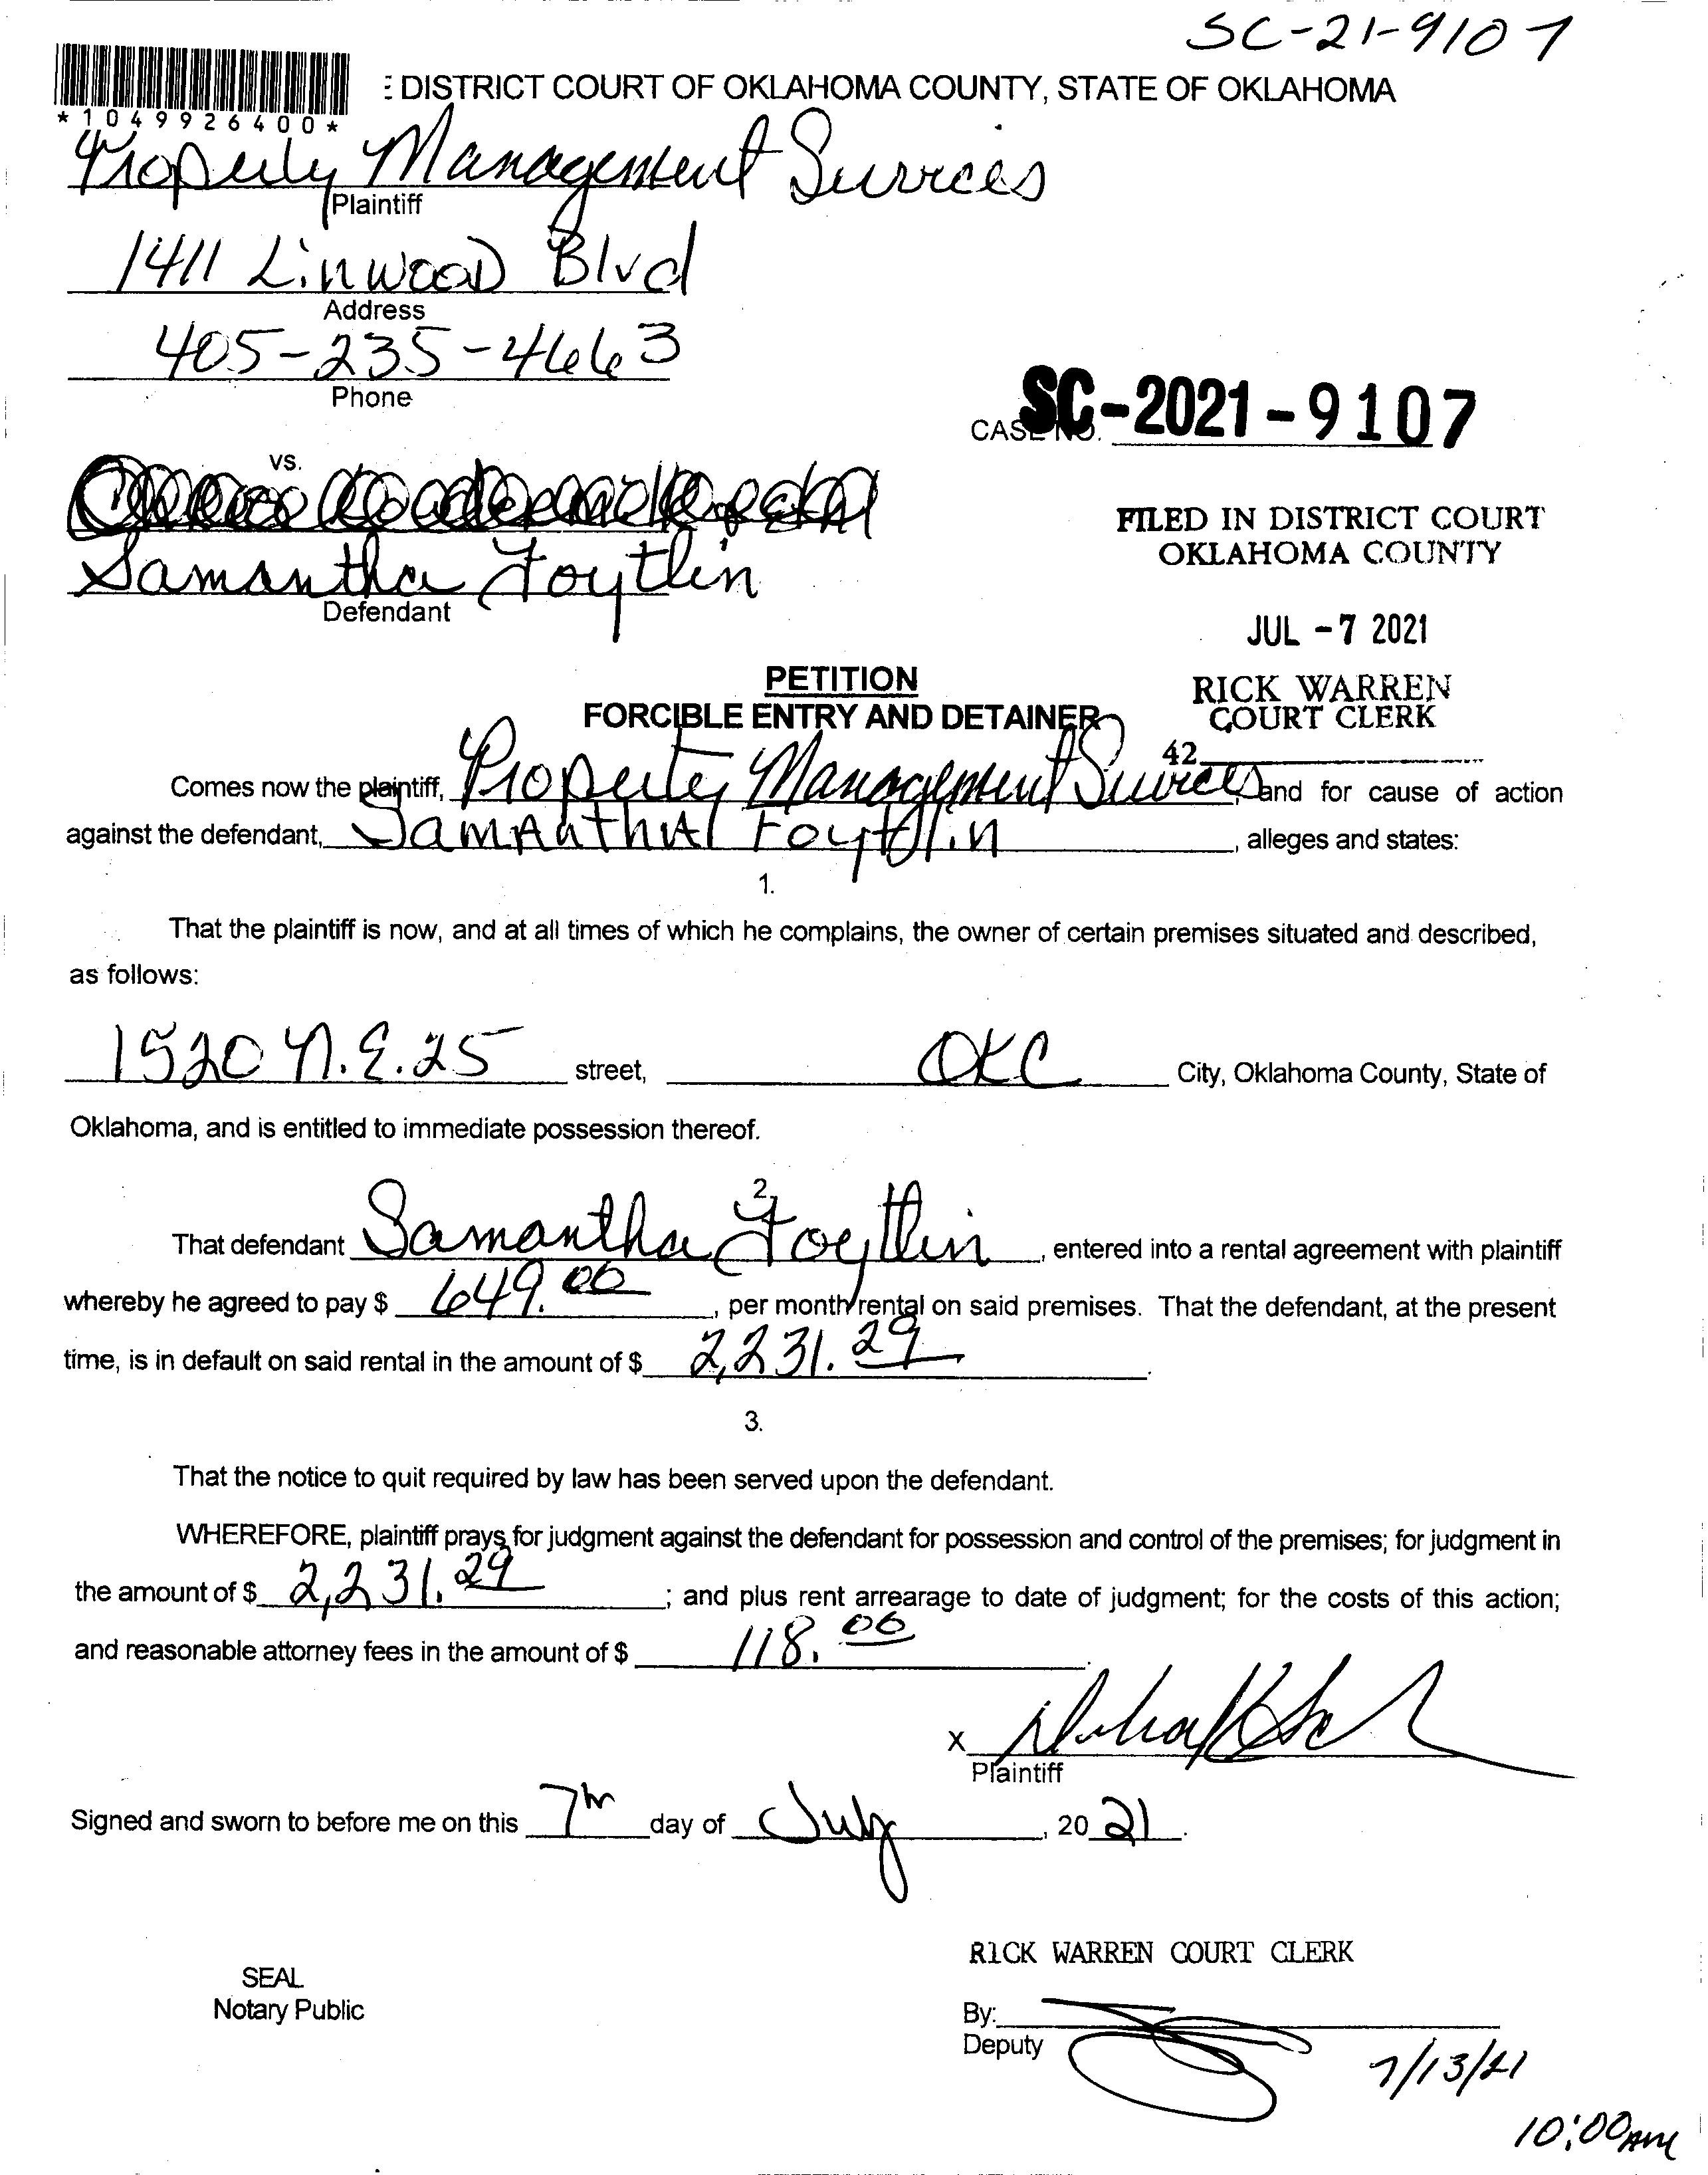 SC-21-9107
: DISTRICT COURT OF OKLAHOMA COUNTY, STATE OF OKLAHOMA
*1049926400*
Property Management Services
Plaintiff
1411 Linwood Blvd
Address
405-235-4663
Phone
SC-2021-9107
CASE NO.
vs.
Samantha Foytlin
Defendant
FILED IN DISTRICT COURT
OKLAHOMA COUNTY
JUL -7 2021
RICK WARREN
COURT CLERK
42
PETITION
FORCIBLE ENTRY AND DETAINER
Comes now the plaintiff, Property Management Services, and for cause of action
against the defendant, Samantha Foytlin, alleges and states:
1.
That the plaintiff is now, and at all times of which he complains, the owner of certain premises situated and described,
as follows:
1520 N.E. 25 street, OKC City, Oklahoma County, State of
Oklahoma, and is entitled to immediate possession thereof.
2.
That defendant Samantha Foytlin, entered into a rental agreement with plaintiff
whereby he agreed to pay $ 649.00, per month rental on said premises. That the defendant, at the present
time, is in default on said rental in the amount of $ 2,231.29.
3.
That the notice to quit required by law has been served upon the defendant.
WHEREFORE, plaintiff prays for judgment against the defendant for possession and control of the premises; for judgment in
the amount of $ 2,231.29; and plus rent arrearage to date of judgment; for the costs of this action;
and reasonable attorney fees in the amount of $ 118.00.
X
Plaintiff
Signed and sworn to before me on this 7th day of July, 2021.
RICK WARREN COURT CLERK
SEAL
Notary Public
By:
Deputy
7/13/21
10:00AM